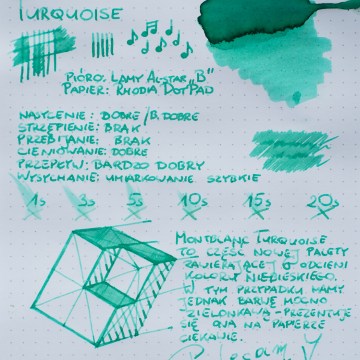 TURQUOISE
PIÓRO: LAMY ALSTAR „B"
PAPIER: RHODIA DOTPAD
NASYCENIE: DOBRE/B. DOBRE
STRZĘPIENIE: BRAK
PRZEBIJANIE: BRAK
CIENIOWANIE: DOBRE
PRZEPŁYW: BARDZO DOBRY
WYSYCHANIE: UMIARKOWANIE SZYBKIE
1s 3s 5s 10s 15s 20s
MONTBLANC TURQUOISE
TO CZĘŚĆ NOWEJ PALETY
ZAWIERAJĄCEJ 6 ODCIENI
KOLORU NIEBIESKIEGO.
W TYM PRZYPADKU MAMY
JEDNAK BARWĘ MOCNO
ZIELONKAWĄ - PREZENTUJE
SIĘ ONA NA PAPIERZE
CIEKAWIE.